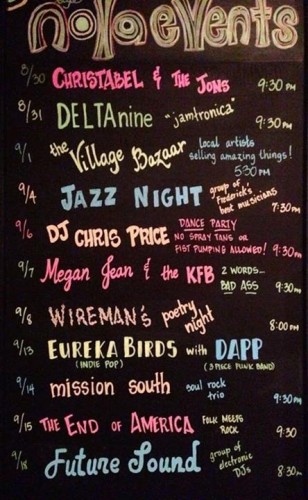 nola events
8/30 CHRISTABEL & THE JONS 9:30 PM
8/31 DELTAnine "jamtronica" 9:30 PM
9/1 the Village Bazaar Local artists selling amazing things! 5:30 PM
9/4 JAZZ NIGHT group of Frederick's best musicians 7:30 PM
9/6 DJ CHRIS PRICE DANCE PARTY NO SPRAY TANS OR FIST PUMPING ALLOWED! 9:30 PM
9/7 Megan Jean & the KFB 2 WORDS... BAD ASS 9:30 PM
9/8 WIREMAN'S poetry night 8:00 PM
9/13 EUREKA BIRDS (INDIE POP) with DAPP (3 PIECE FUNK BAND)
9/14 mission south soul rock trio 9:30 PM
9/15 THE END OF AMERICA FOLK MEETS ROCK 9:30
9/18 Future Sound group of electronic DJs 8:30